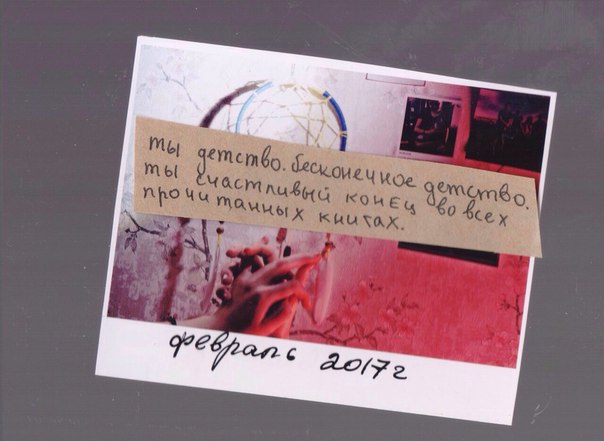 ты детство. бесконечное детство.
ты счастливый конец во всех
прочитанных книгах.
февраль 2017г